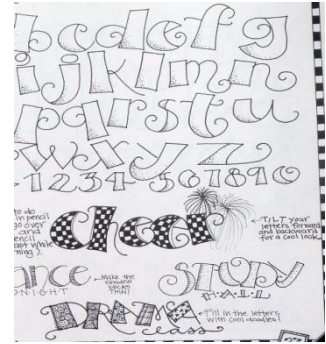 b c d e f g
i j k l m n
p q r s t u
w x y z
1 2 3 4 5 6 7 8 9 0
to do
in pencil
go over
and
encil
not while
ning).
cheer
TILT your
letters forward
and backward
for a cool look
ance
NIGHT
Make the
shadow
backs
THIN!
STUDY
HALL
DRAMA
class
Fill in the letters
with cool doodles!